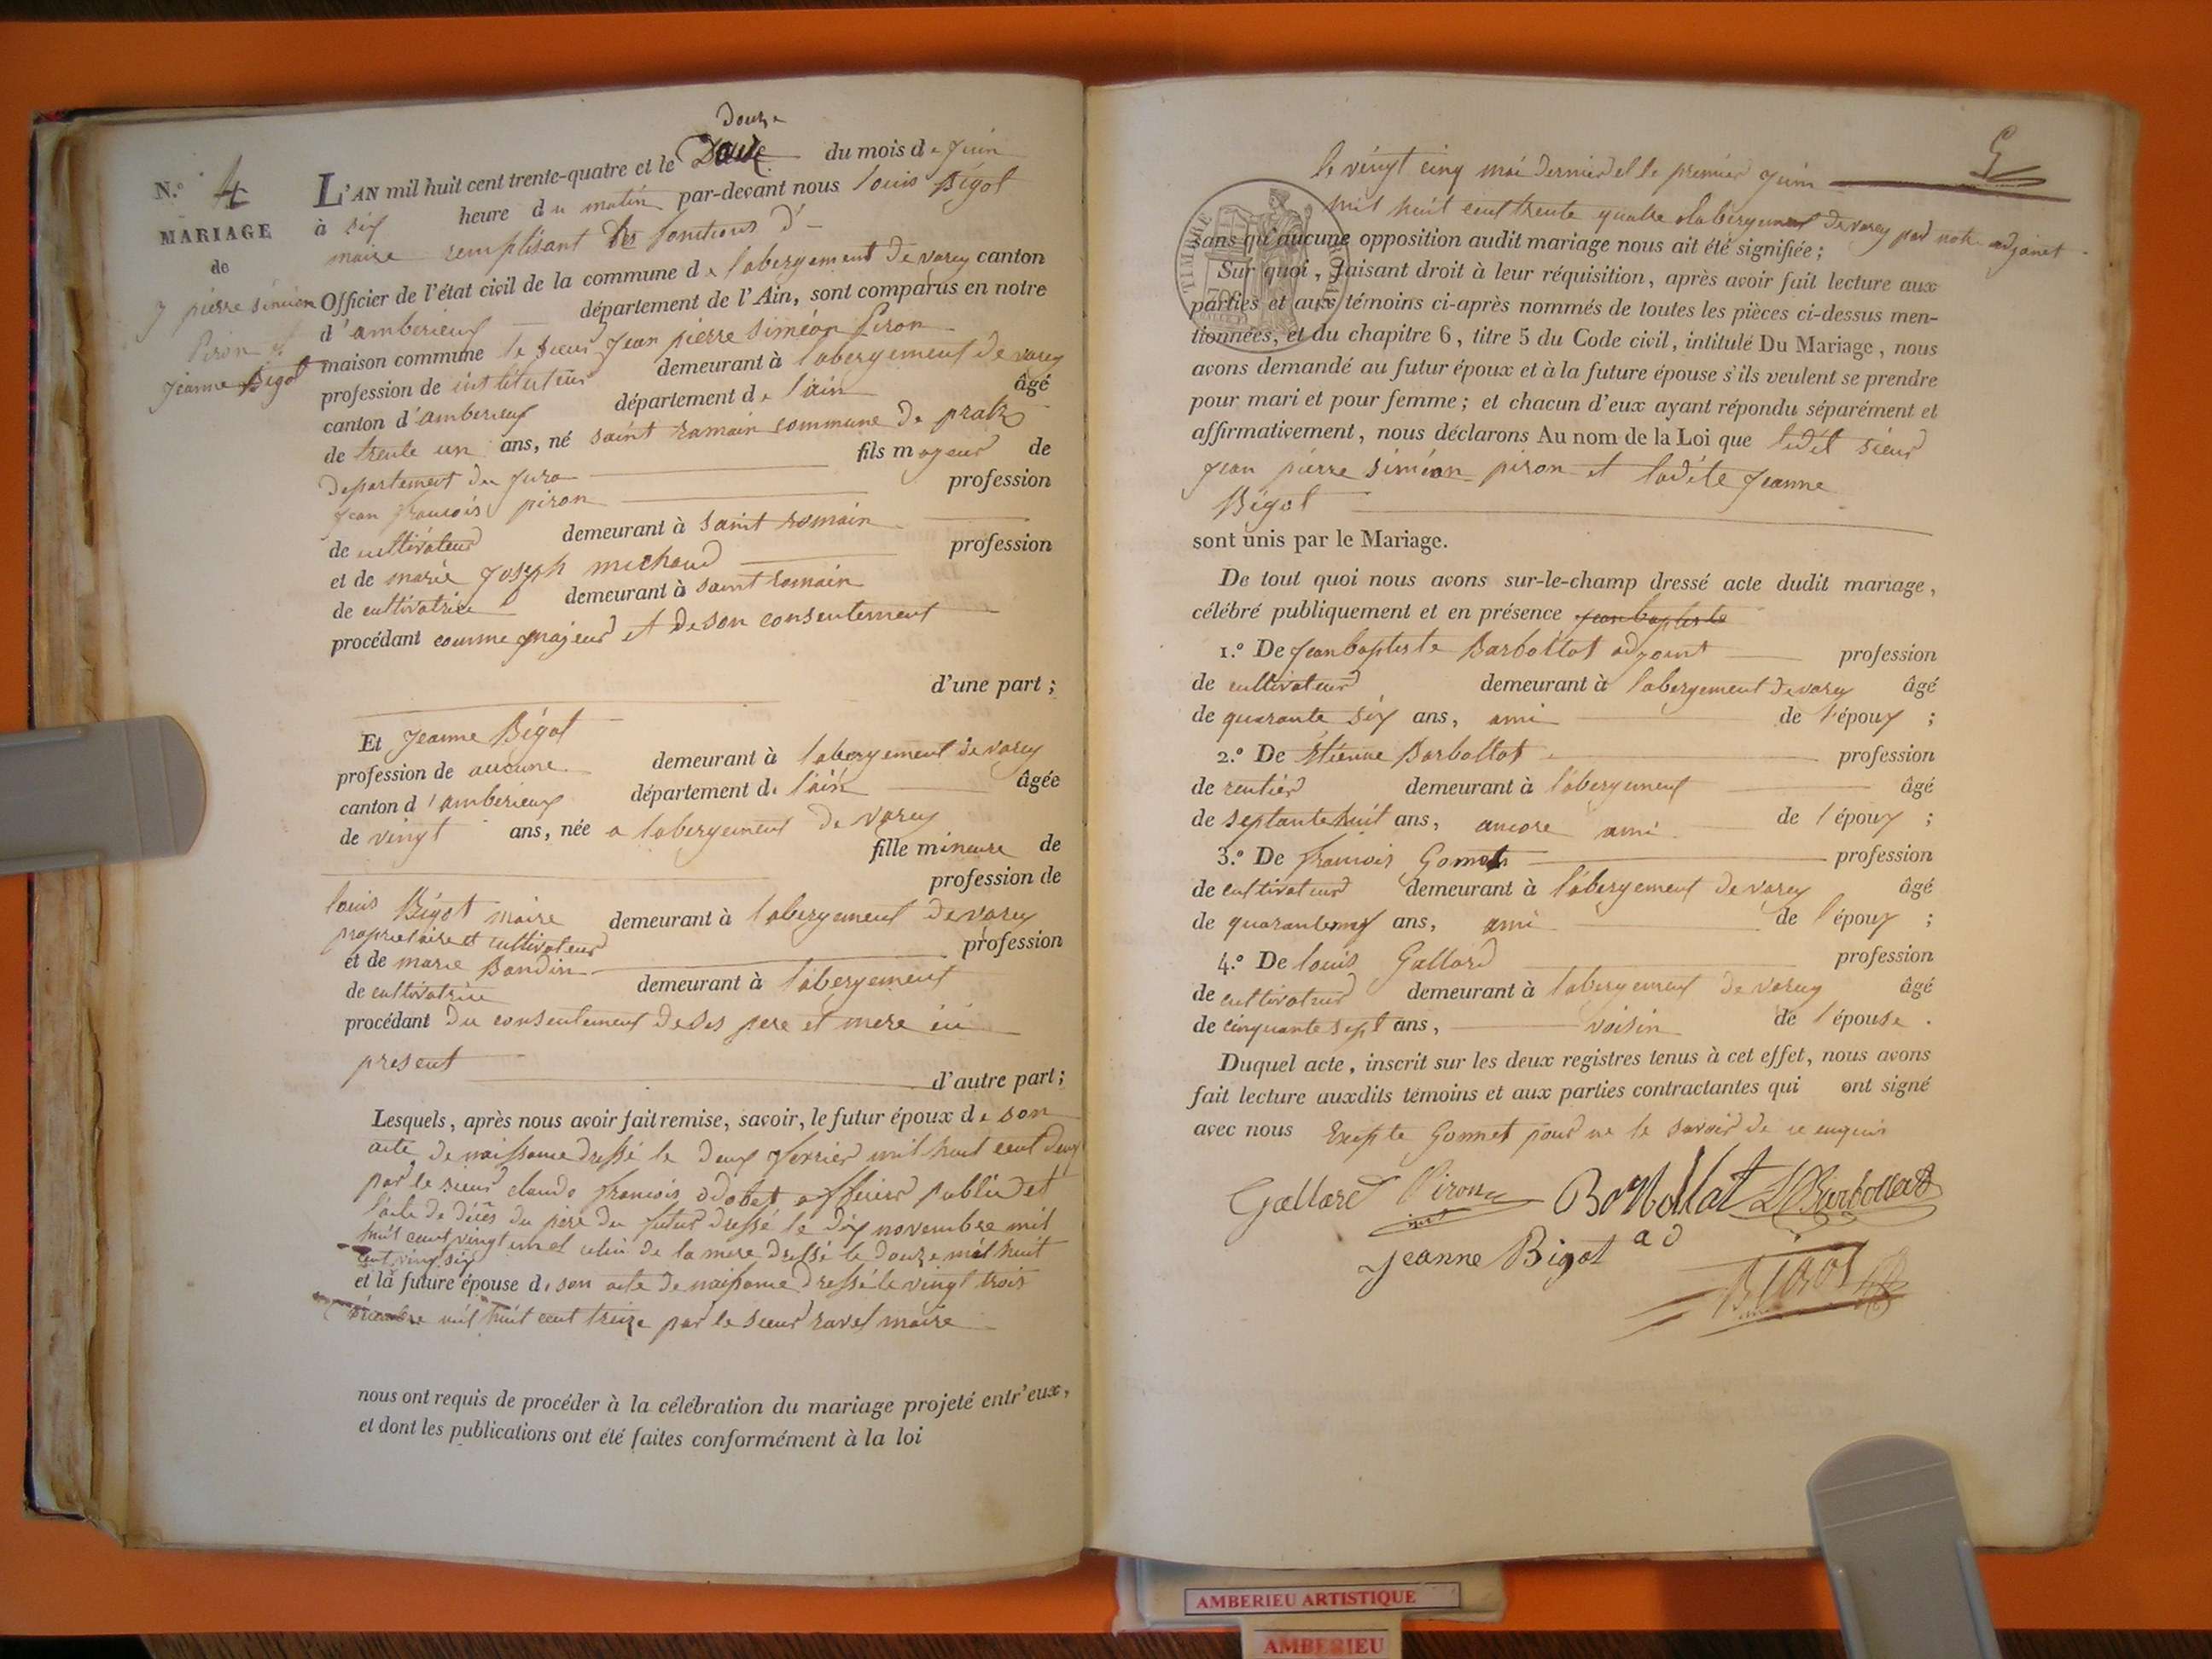 N.º 4
MARIAGE
de
pierre siméon
Piron et
Jeanne Bigot
douze
L'AN mil huit cent trente-quatre et le douze du mois de Juin
à six heure du matin par-devant nous louis Bigot
maire remplisant les fonctions d'
Officier de l'état civil de la commune de labergement de varey canton
d'amberieux département de l'Ain, sont comparus en notre
maison commune le sieur Jean pierre siméon Piron
profession de instituteur demeurant à labergement de varey
canton d'amberieux département de lain âgé
de trente un ans, né saint romain commune de pratz
departement du Jura fils majeur de
Jean francois piron profession
de cultivateur demeurant à saint romain
et de marie Joseph michaud profession
de cultivatrice demeurant à saint romain
procédant comme majeur et de son consentement
d'une part ;
Et Jeanne Bigot
profession de aucune demeurant à labergement de varey
canton d'amberieux département de lain âgée
de vingt ans, née a labergement de varey
fille mineure de
profession de
louis Bigot maire demeurant à labergement de varey
proprietaire et cultivateur
et de marie Bondin profession
de cultivatrice demeurant à labergement
procédant du consentement de ses pere et mere ici
present
d'autre part ;
Lesquels, après nous avoir fait remise, savoir, le futur époux de son
acte de naissance dressé le deux fevrier mil huit cent deux
par le sieur claude francois odobet officier public et
l'acte de décès du père du futur dressé le dix novembre mil
huit cent vingt un et celui de la mere dressé le douze mil huit
cent ving six
et la future épouse de son acte de naissance dressé le vingt trois
décembre mil huit cent treize par le sieur ravet maire
nous ont requis de procéder à la célébration du mariage projeté entr'eux,
et dont les publications ont été faites conformément à la loi
le vingt cinq mai dernier et le premier Juin
mil huit cent trente quatre a labergement de varey par notre adjoint
TIMBRE ROYAL
sans qu'aucune opposition audit mariage nous ait été signifiée ;
Sur quoi, faisant droit à leur réquisition, après avoir fait lecture aux
parties et aux témoins ci-après nommés de toutes les pièces ci-dessus men-
tionnées, et du chapitre 6, titre 5 du Code civil, intitulé Du Mariage, nous
avons demandé au futur époux et à la future épouse s'ils veulent se prendre
pour mari et pour femme ; et chacun d'eux ayant répondu séparément et
affirmativement, nous déclarons Au nom de la Loi que ledit sieur
Jean pierre siméon piron et ladite Jeanne
Bigot
sont unis par le Mariage.
De tout quoi nous avons sur-le-champ dressé acte dudit mariage,
célébré publiquement et en présence Jean baptiste
1.º De Jean baptiste Barbollat adjoint profession
de cultivateur demeurant à labergement de varey âgé
de quarante six ans, ami de l'époux ;
2.º De Etienne Barbollat profession
de rentier demeurant à labergement âgé
de septante huit ans, ancore ami de l'époux ;
3.º De francois Gomet profession
de cultivateur demeurant à labergement de varey âgé
de ans, ami de l'époux ;
4.º De louis Gallard profession
de cultivateur demeurant à labergement de varey âgé
de cinquante sept ans, voisin de l'épouse.
Duquel acte, inscrit sur les deux registres tenus à cet effet, nous avons
fait lecture auxdits témoins et aux parties contractantes qui ont signé
avec nous Excepte Gonnet pour ne le savoir de ce enquis
Gallard Piron Barbollat Barbollat
Jeanne Bigot ad
Bigot
AMBERIEU ARTISTIQUE
AMBERIEU